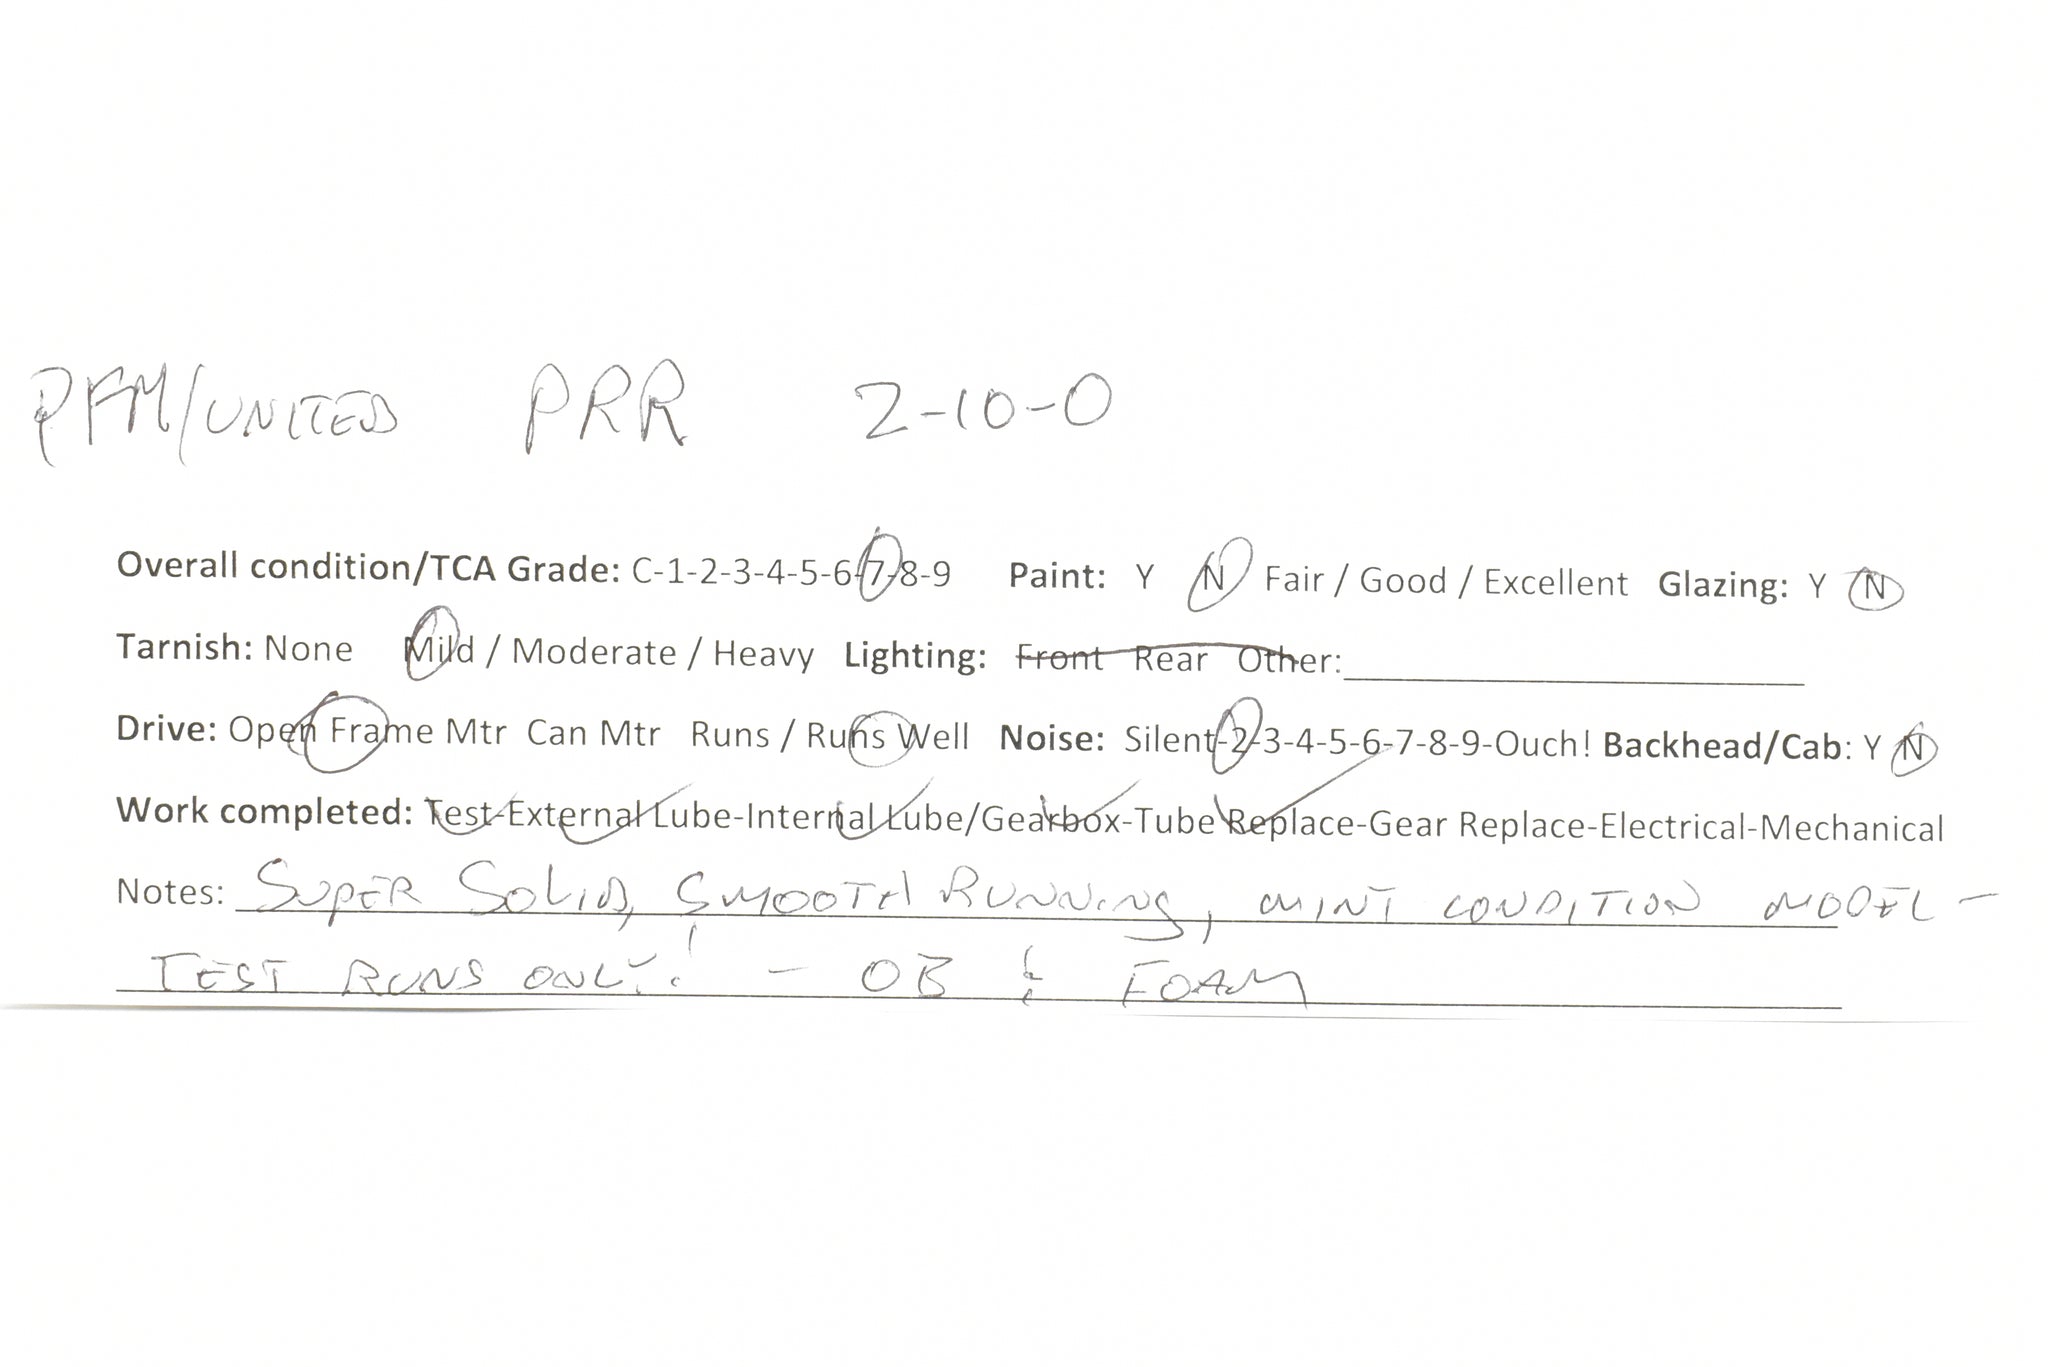 PFM/UNITED PRR 2-10-0
Overall condition/TCA Grade: C-1-2-3-4-5-6-7-8-9 Paint: Y N Fair / Good / Excellent Glazing: Y N
Tarnish: None Mild / Moderate / Heavy Lighting: Front Rear Other:
Drive: Open Frame Mtr Can Mtr Runs / Runs Well Noise: Silent-2-3-4-5-6-7-8-9-Ouch! Backhead/Cab: Y N
Work completed: Test-External Lube-Internal Lube/Gearbox-Tube Replace-Gear Replace-Electrical-Mechanical
Notes: SUPER SOLID, SMOOTH RUNNING, MINT CONDITION MODEL -
TEST RUNS ONLY! - OB & FOAM